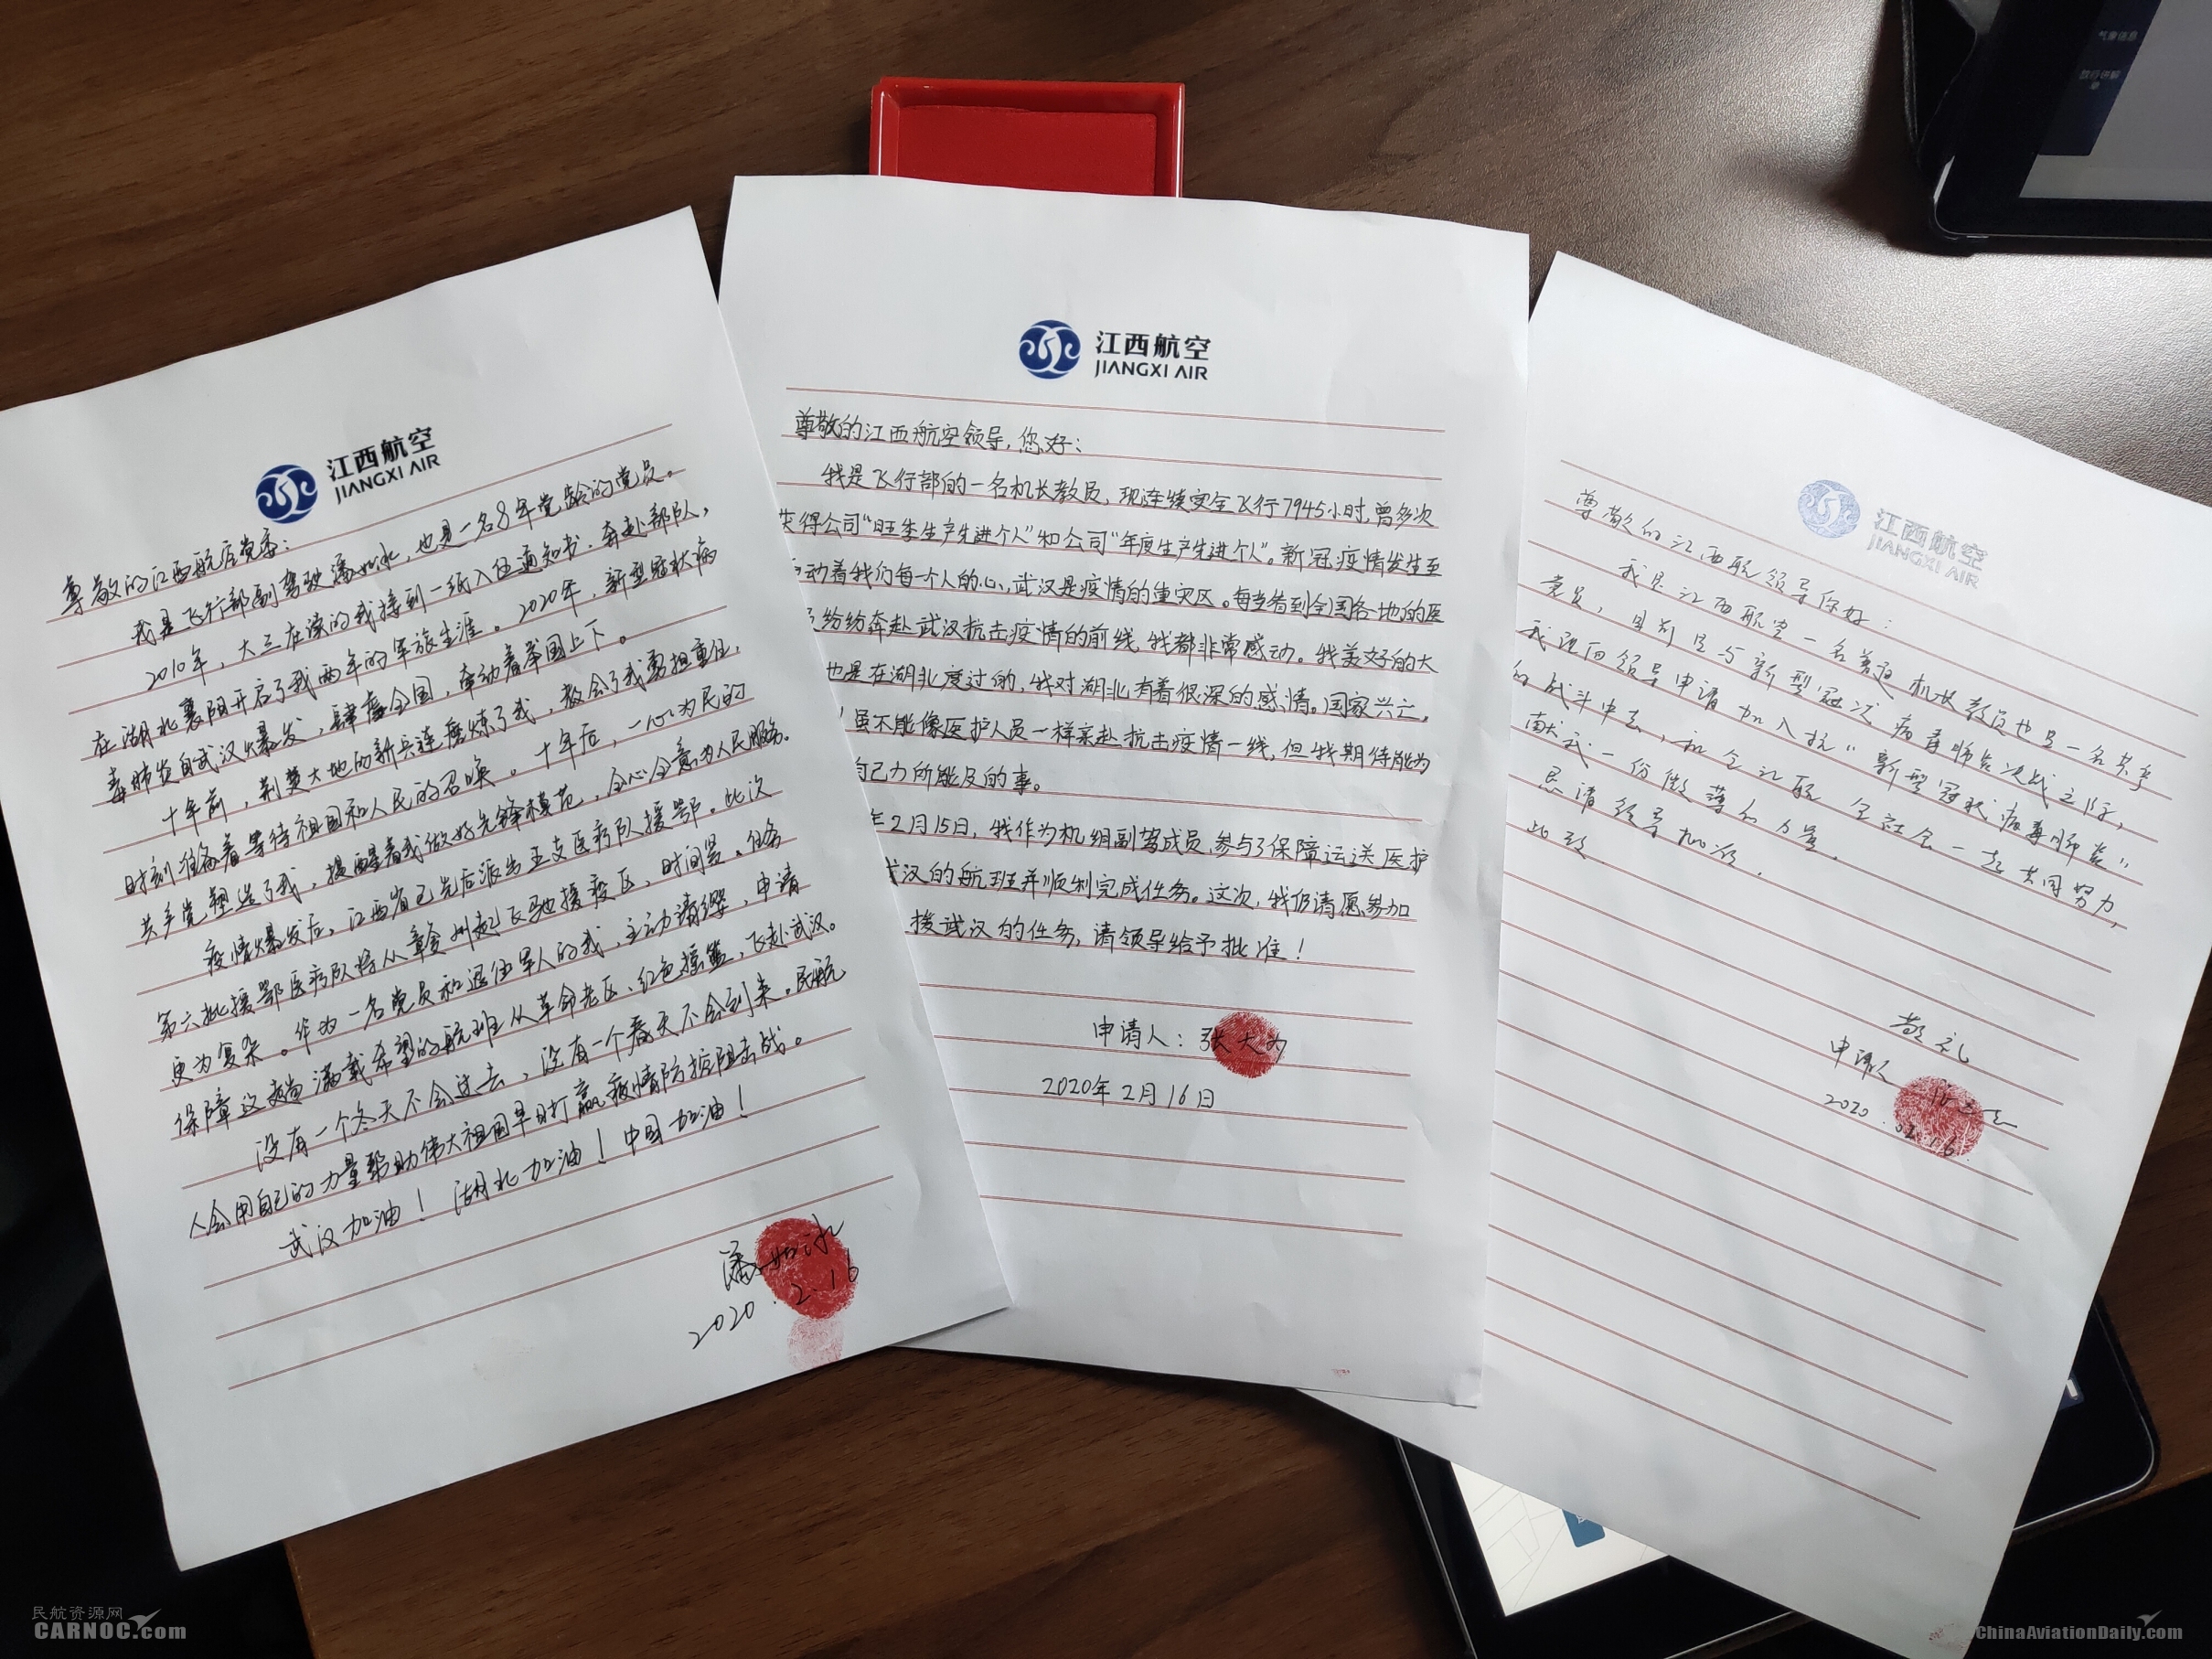 江西航空
JIANGXI AIR
尊敬的江西航空党委：
我是飞行部副驾驶潘如冰，也是一名8年党龄的党员。
2010年，大三在读的我接到一纸入伍通知书，奔赴部队，
在湖北襄阳开启了我两年的军旅生涯。2020年，新型冠状病
毒肺炎自武汉爆发，肆虐全国，牵动着举国上下。
十年前，荆楚大地的新兵连磨炼了我，教会了我勇担重任，
时刻准备着等待祖国和人民的召唤。十年后，一心为民的
共产党塑造了我，提醒着我做好先锋模范，全心全意为人民服务。
疫情爆发后，江西省已先后派出五支医疗队援鄂。此次
第六批援鄂医疗队将从赣州起飞驰援疫区，时间紧、任务
更为复杂。作为一名党员和退伍军人的我，主动请缨，申请
保障这趟满载希望的航班从革命老区、红色摇篮，飞赴武汉。
没有一个冬天不会过去，没有一个春天不会到来。民航
人会用自己的力量帮助伟大祖国早日打赢疫情防控阻击战。
武汉加油！湖北加油！中国加油！
潘如冰
2020.2.16
江西航空
JIANGXI AIR
尊敬的江西航空领导，您好：
我是飞行部的一名机长教员，现连续安全飞行7945小时，曾多次
获得公司“旺季生产先进个人”和公司“年度生产先进个人”。新冠疫情发生至
动着我们每一个人的心，武汉是疫情的重灾区。每当看到全国各地的医
纷纷奔赴武汉抗击疫情的前线，我都非常感动。我美好的大
也是在湖北度过的，我对湖北有着很深的感情。国家兴亡，
！虽不能像医护人员一样亲赴抗击疫情一线，但我期待能为
自己力所能及的事。
年2月15日，我作为机组副驾成员，参与了保障运送医护
武汉的航班并顺利完成任务。这次，我仍请愿参加
援武汉的任务，请领导给予批准！
申请人：张大为
2020年2月16日
江西航空
JIANGXI AIR
尊敬的江西航领导你好：
我是江西航空一名普通机长教员也是一名共产
党员，目前是与新型冠状病毒肺炎决战之际，
我现向领导申请加入抗“新型冠状病毒肺炎”
的战斗中去，和全江航全社会一起共同努力，
献我一份微薄的力量。
恳请领导批准。
此致.
敬礼
申请人
2020.02.16
民航资源网
CARNOC.com
ChinaAviationDaily.com